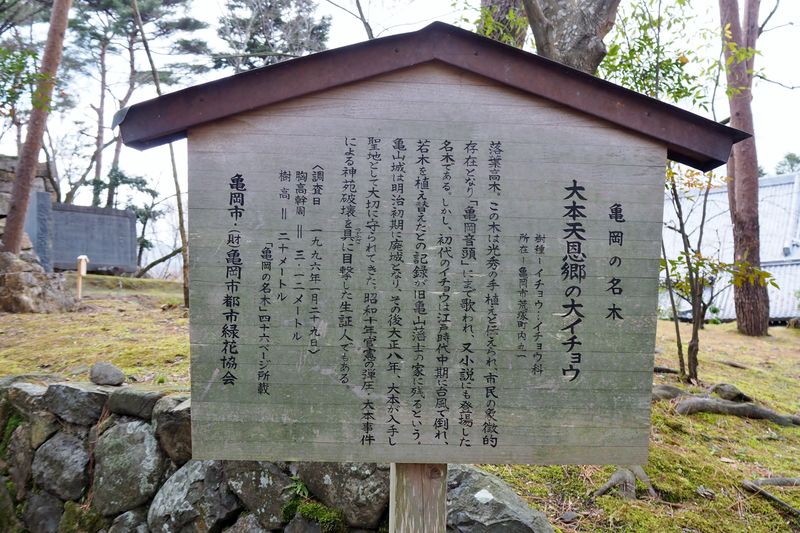 亀岡の名木
大本天恩郷の大イチョウ
樹種－イチョウ：イチョウ科
所在－亀岡市荒塚町内丸一
落葉高木。この木は光秀の手植えと伝えられ、市民の象徴的
存在となり「亀岡音頭」にまで歌われ、又小説にも登場した
名木である。しかし、初代のイチョウは江戸時代中期に台風で倒れ、
若木を植え替えたとの記録が旧亀山藩士の家に残るという。
亀山城は明治初期に廃城となり、その後大正八年、大本が入手し
聖地として大切に守られてきた。昭和十年官憲の弾圧・大本事件
による神苑破壊を具に目撃した生証人でもある。
〈調査日　一九九六年一月二十九日〉
胸高幹周 ＝ 三・二メートル
樹　高 ＝ 二十メートル
「亀岡の名木」四十六ページ所載
亀岡市・㈶亀岡市都市緑花協会